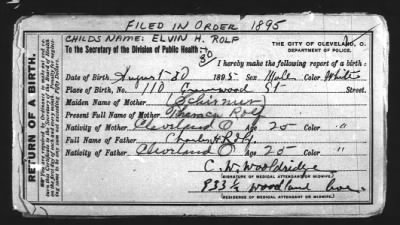 FILED IN ORDER 1895
CHILDS NAME: ELVIN H. ROLF
THE CITY OF CLEVELAND, O.
DEPARTMENT OF POLICE.
To the Secretary of the Division of Public Health:
30
I hereby make the following report of a birth:
Date of Birth, August 30 1895 Sex Male Color White
Place of Birth, No. 110 Greenwood St Street.
Maiden Name of Mother Schirmer
Present Full Name of Mother Theresa Rolf
Nativity of Mother Cleveland O Age 25 Color "
Full Name of Father Charles H Rolf
Nativity of Father Cleveland O Age 25 Color "
C. W. Wooldridge
SIGNATURE OF MEDICAL ATTENDANT OR MIDWIFE.
933 1/2 Woodland Ave
RESIDENCE OF MEDICAL ATTENDANT OR MIDWIFE.
RETURN OF A BIRTH.